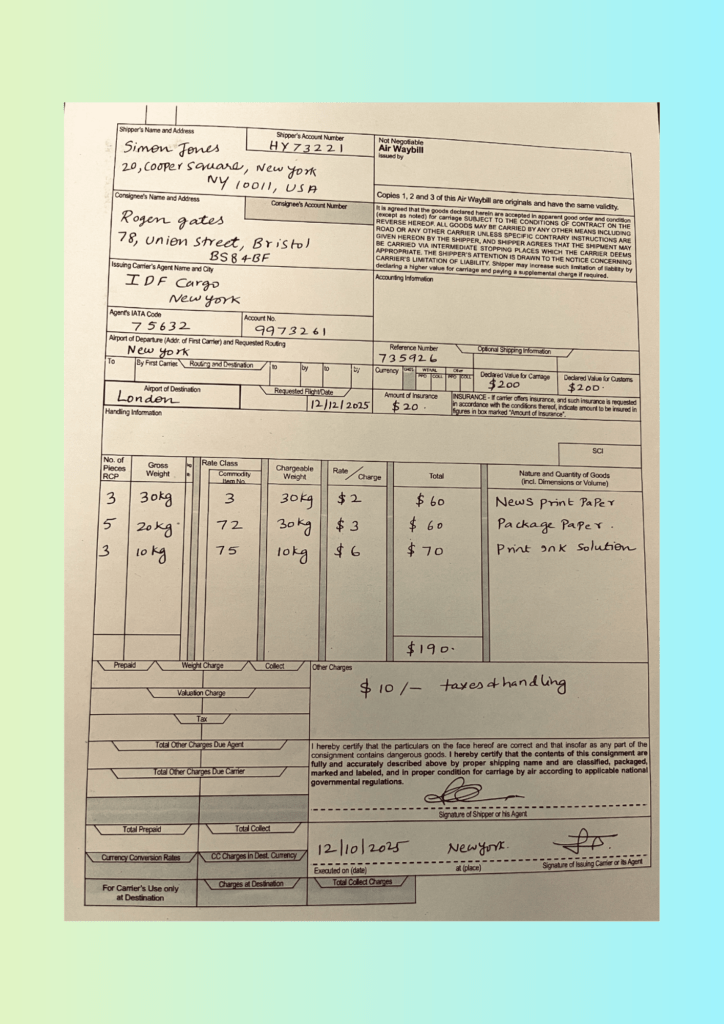 Shipper's Name and Address
Shipper's Account Number
Simon Jones
HY73221
20, Cooper Square, New york
NY 10011, USA
Not Negotiable
Air Waybill
Issued by
Copies 1, 2 and 3 of this Air Waybill are originals and have the same validity.
Consignee's Name and Address
Consignee's Account Number
Rogen gates
78, union street, Bristol
BS8 4BF
It is agreed that the goods declared herein are accepted in apparent good order and condition
(except as noted) for carriage SUBJECT TO THE CONDITIONS OF CONTRACT ON THE
REVERSE HEREOF. ALL GOODS MAY BE CARRIED BY ANY OTHER MEANS INCLUDING
ROAD OR ANY OTHER CARRIER UNLESS SPECIFIC CONTRARY INSTRUCTIONS ARE
GIVEN HEREON BY THE SHIPPER, AND SHIPPER AGREES THAT THE SHIPMENT MAY
BE CARRIED VIA INTERMEDIATE STOPPING PLACES WHICH THE CARRIER DEEMS
APPROPRIATE. THE SHIPPER'S ATTENTION IS DRAWN TO THE NOTICE CONCERNING
CARRIER'S LIMITATION OF LIABILITY. Shipper may increase such limitation of liability by
declaring a higher value for carriage and paying a supplemental charge if required.
Issuing Carrier's Agent Name and City
IDF Cargo
New york
Accounting Information
Agent's IATA Code
Account No.
75632
9973261
Airport of Departure (Addr. of First Carrier) and Requested Routing
New york
Reference Number
Optional Shipping Information
735926
To
By First Carrier
Routing and Destination
to
by
to
by
Currency
CHGS
WT/VAL
Other
PPD
COLL
PPD
COLL
Declared Value for Carriage
$200
Declared Value for Customs
$200.
Airport of Destination
London
Requested Flight/Date
12/12/2025
Amount of Insurance
$20.
INSURANCE - If carrier offers insurance, and such insurance is requested
in accordance with the conditions thereof, indicate amount to be insured in
figures in box marked "Amount of Insurance".
Handling Information
SCI
No. of
Pieces
RCP
Gross
Weight
Rate Class
Commodity
Item No.
Chargeable
Weight
Rate / Charge
Total
Nature and Quantity of Goods
(incl. Dimensions or Volume)
3 30kg 3 30kg $2 $60 News Print Paper
5 20kg. 72 30kg $3 $60 Package Paper.
3 10kg 75 10kg $6 $70 Print Ink Solution
$190.
Prepaid
Weight Charge
Collect
Other Charges
$10/- taxes & handling
Valuation Charge
Tax
Total Other Charges Due Agent
Total Other Charges Due Carrier
I hereby certify that the particulars on the face hereof are correct and that insofar as any part of the
consignment contains dangerous goods. I hereby certify that the contents of this consignment are
fully and accurately described above by proper shipping name and are classified, packaged,
marked and labeled, and in proper condition for carriage by air according to applicable national
governmental regulations.
Signature of Shipper or his Agent
Total Prepaid
Total Collect
Currency Conversion Rates
CC Charges in Dest. Currency
12/10/2025 New york.
Executed on (date)
at (place)
Signature of Issuing Carrier or its Agent
For Carrier's Use only
at Destination
Charges at Destination
Total Collect Charges